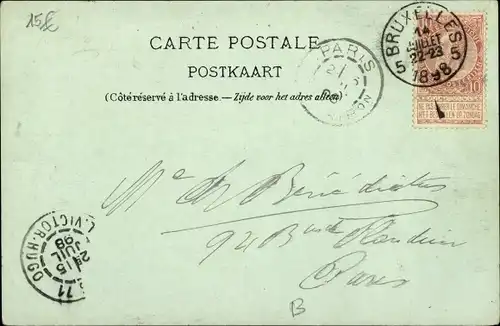 15/c
CARTE POSTALE
POSTKAART
(Côté réservé à l'adresse.—Zijde voor het adres alleen)
PARIS
BRUXELLES
14
JUILLET
22-23
5 5
1898
10
NE PAS LIVRER LE DIMANCHE
NIET BESTELLEN OP ZONDAG
Bénédictus
92 Bd
Paris
B
R. VICTOR-HUGO
15
JUIL
98
71